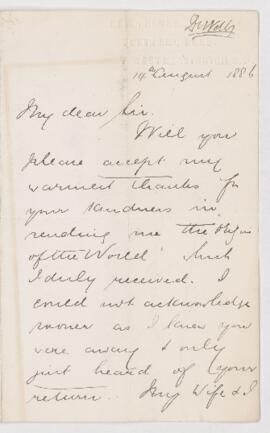 14th August 1886
My dear Sir.
Will you
please accept my
warmest thanks for
your kindness in
sending me the
of the World" which
I duly received. I
could not acknowledge
sooner as I knew you
were away & only
just heard of your
return. My Wife & I